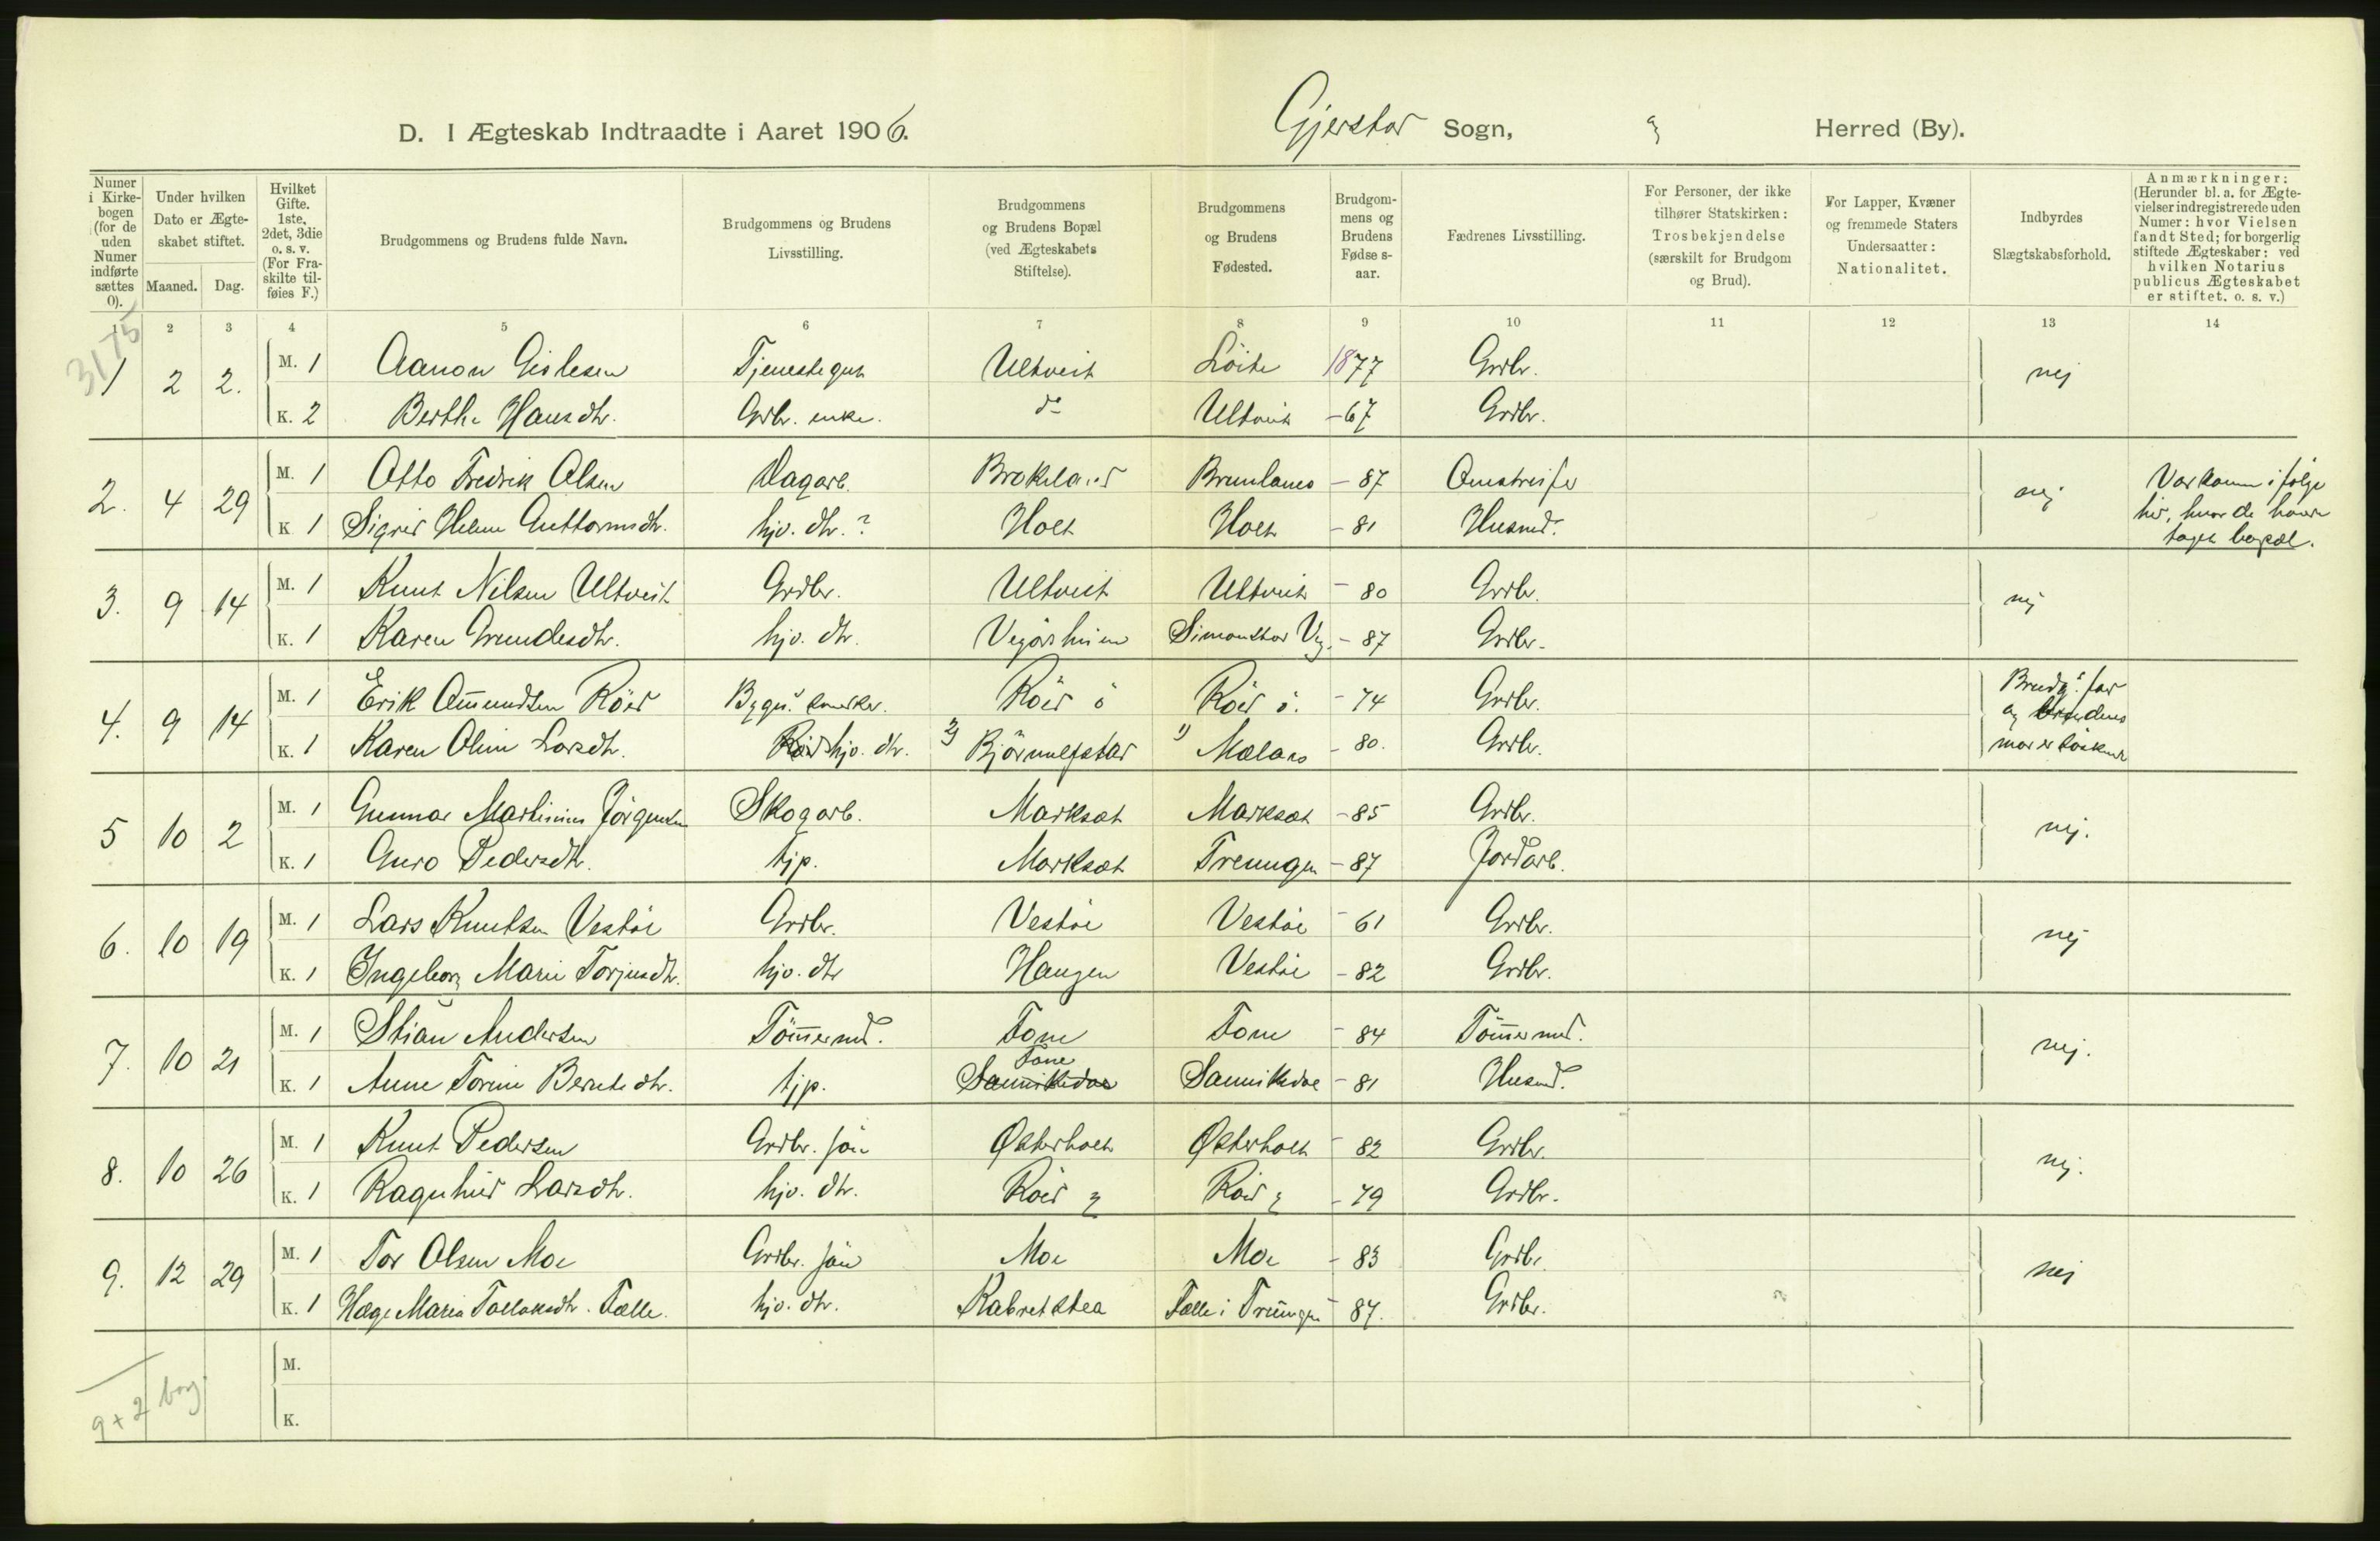 D. I Ægteskab Indtraadte i Aaret 1906. Gjerstad Sogn, Herred (By).
Numer i Kirkebogen (for de uden Numer indførte sættes 0).
Under hvilken Dato er Ægteskabet stiftet.
Maaned. Dag.
Hvilket Gifte. 1ste, 2det, 3die o. s. v. (For Fraskilte tilføies F.)
Brudgommens og Brudens fulde Navn.
Brudgommens og Brudens Livsstilling.
Brudgommens og Brudens Bopæl (ved Ægteskabets Stiftelse).
Brudgommens og Brudens Fødested.
Brudgommens og Brudens Fødselsaar.
Fædrenes Livsstilling.
For Personer, der ikke tilhører Statskirken: Trosbekjendelse (særskilt for Brudgom og Brud).
For Lapper, Kvæner og fremmede Staters Undersaatter: Nationalitet.
Indbyrdes Slægtskabsforhold.
Anmærkninger: (Herunder bl. a. for Ægtevielser indregistrerede uden Numer: hvor Vielsen fandt Sted; for borgerlig stiftede Ægteskaber: ved hvilken Notarius publicus Ægteskabet er stiftet. o. s. v.)
1 2 3 4 5 6 7 8 9 10 11 12 13 14
3175
1 2 2. M. 1 Aanon Gislesen Tjenestegut Ultveit Löite 1877 Grdbr. nej
K. 2 Berthe Hansdtr. Grdbr. enke. do Ultveit - 67 Grdbr.
2. 4 29 M. 1 Otto Fredrik Olsen Dagarb. Brokeland Brunlanes - 87 nej
K 1 Sigrid Helene Guttormsdtr. hjv. dtr. ? Holt Holt - 81 Husmd.
Var kommen i følge
her, hvor de havde
taget bopæl.
3. 9 14 M. 1 Knut Nilsen Ultveit Grdbr. Ultveit Ultveit - 80 Grdbr. nej
K. 1 Karen Grundesdtr. hjv. dtr. Vegårsheien Simonstad Veg. - 87 Grdbr.
4. 9 14 M. 1 Erik Amundsen Röed Bygn. snedker. Röed ö Röed ö. - 74 Grdbr.
K. 1 Karen Oline Larsdtr. hjv. dtr. 2) Björnulfstad 1) Mælaas - 80. Grdbr.
Brudg. far
og brudens
mor er söskend
5 10 2 M. 1 Gunnar Martinius Jörgensen Skogarb. Marksæt Marksæt - 85 Grdbr. nej.
K. 1 Guro Pedersdtr. tjp. Marksæt Treungen - 87 Jordarb.
6. 10 19 M. 1 Lars Knutsen Vestöl Grdbr. Vestöl Vestöl - 61 Grdbr. nej
K. 1 Ingeborg Marie Torjusdtr. hjv. dtr Haugen Vestöl - 82 Grdbr.
7. 10 21 M. 1 Stian Andersen Tömmermd. Fone Fone - 84 Tömmermd. nej.
Fone
K. 1 Anne Torine Berntsdtr. tjp. Sannikedal Sannikedal - 81 Husmd.
8. 10 26 M. 1 Knut Pedersen Grdbr. sön Østerholt Østerholt - 82 Grdbr. nej.
K. 1 Ragnhild Larsdtr. hjv. dtr. Röed Röed - 79 Grdbr.
9. 12 29 M. 1 Tor Olsen Moe Grdbr. sön Moe Moe - 83 Grdbr. nej
K. 1 Hæge Maria Tallaksdtr. Fælle. hjv. dtr. Fælle i Treungen - 87. Grdbr.
M.
K.
9 + 2 borg.